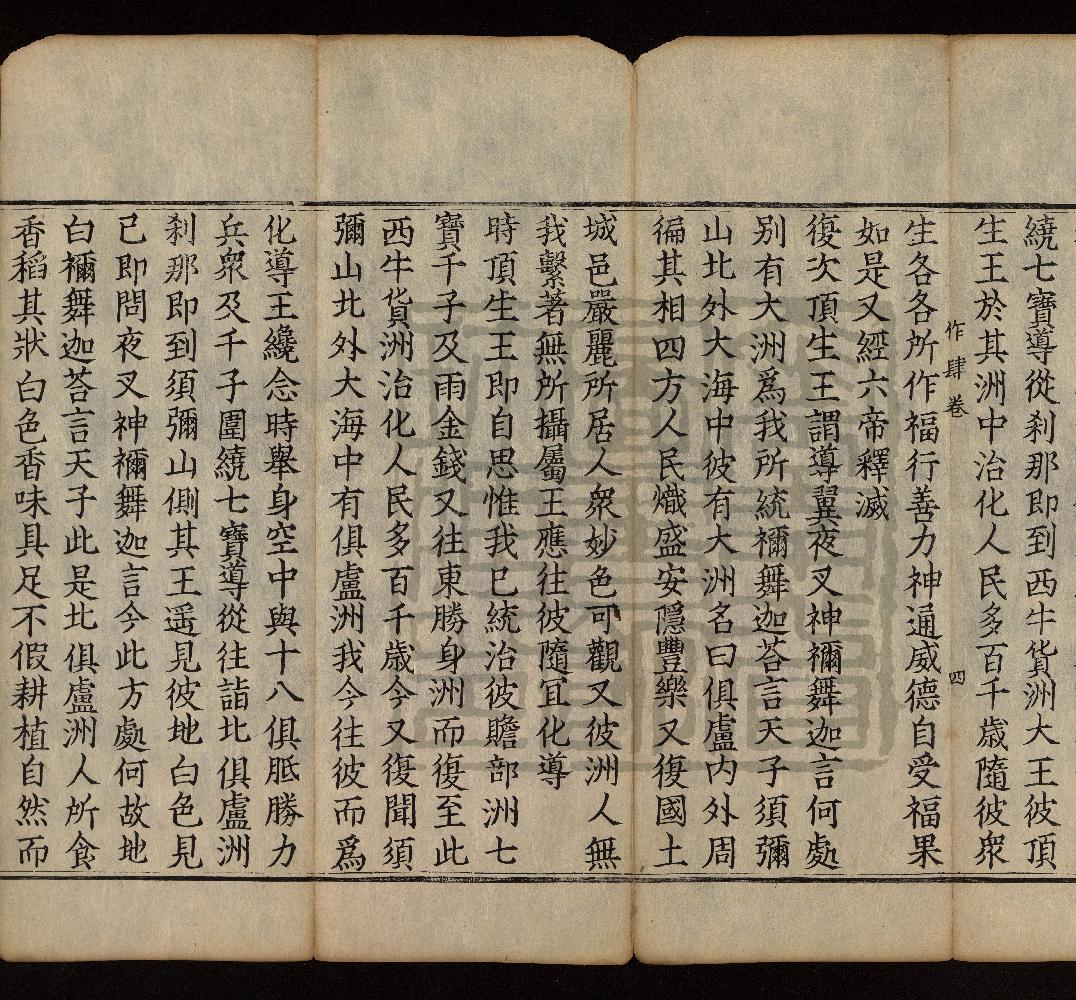 繞七寶導從刹那即到西牛貨洲大王彼頂
生王於其洲中治化人民多百千歲隨彼衆
作肆卷 四
生各各所作福行善力神通威德自受福果
如是又經六帝釋滅
復次頂生王謂導翼夜叉神禰舞迦言何處
別有大洲爲我所統禰舞迦荅言天子須彌
山北外大海中彼有大洲名曰俱盧内外周
徧其相四方人民熾盛安隱豐樂又復國土
城邑嚴麗所居人衆妙色可觀又彼洲人無
我繫著無所攝屬王應往彼隨冝化導
時頂生王即自思惟我已統治彼贍部洲七
寶千子及雨金錢又往東勝身洲而復至此
西牛貨洲治化人民多百千歲今又復聞須
彌山北外大海中有俱盧洲我今往彼而爲
化導王纔念時舉身空中與十八俱胝勝力
兵衆及千子圍繞七寶導從往詣北俱盧洲
刹那即到須彌山側其王遥見彼地白色見
已即問夜叉神禰舞迦言今此方處何故地
白禰舞迦荅言天子此是北俱盧洲人所食
香稻其狀白色香味具足不假耕植自然而